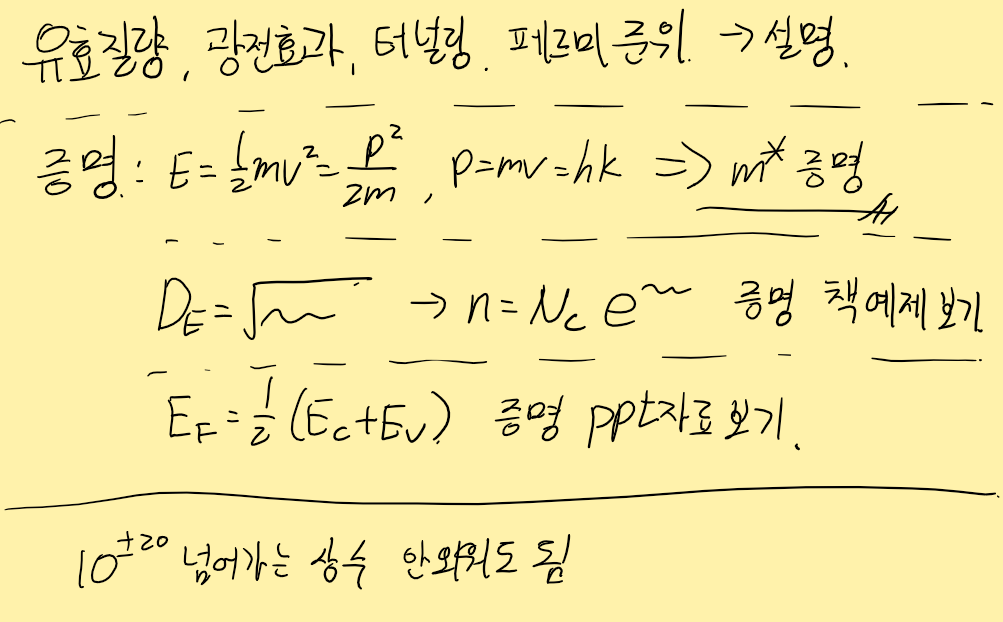 유효질량, 광전효과, 터널링. 페르미 준위. → 설명.
증명: E = 1/2 mv² = p²/2m, p=mv=hk ⇒ m* 증명
D_E = √~~ → n = N_c e^~~ 증명 책예제보기
E_F = 1/2 (E_c+E_v) 증명 ppt자료보기.
10^±20 넘어가는 상수 안외워도 됨